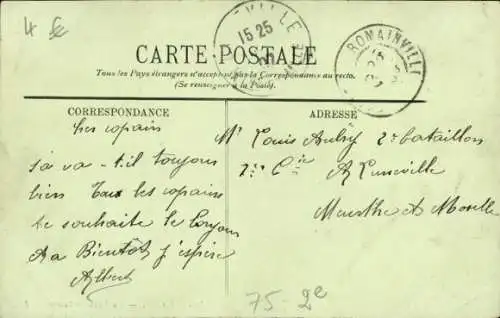 4 fc
VILLE
15 25
ROMAINVILLE
CARTE POSTALE
Tous les Pays étrangers n'acceptent pas la Correspondance au recto.
(Se renseigner à la Poste).
CORRESPONDANCE
ADRESSE
Les copains
sa va-t-il toujours
bien Tous les copains
te souhaite le bonjour
A a Bientôt j'espère
Albert
Mr Louis Aubry 2e bataillon
2e Cie
A Luneville
Meurthe et Moselle
75-2e